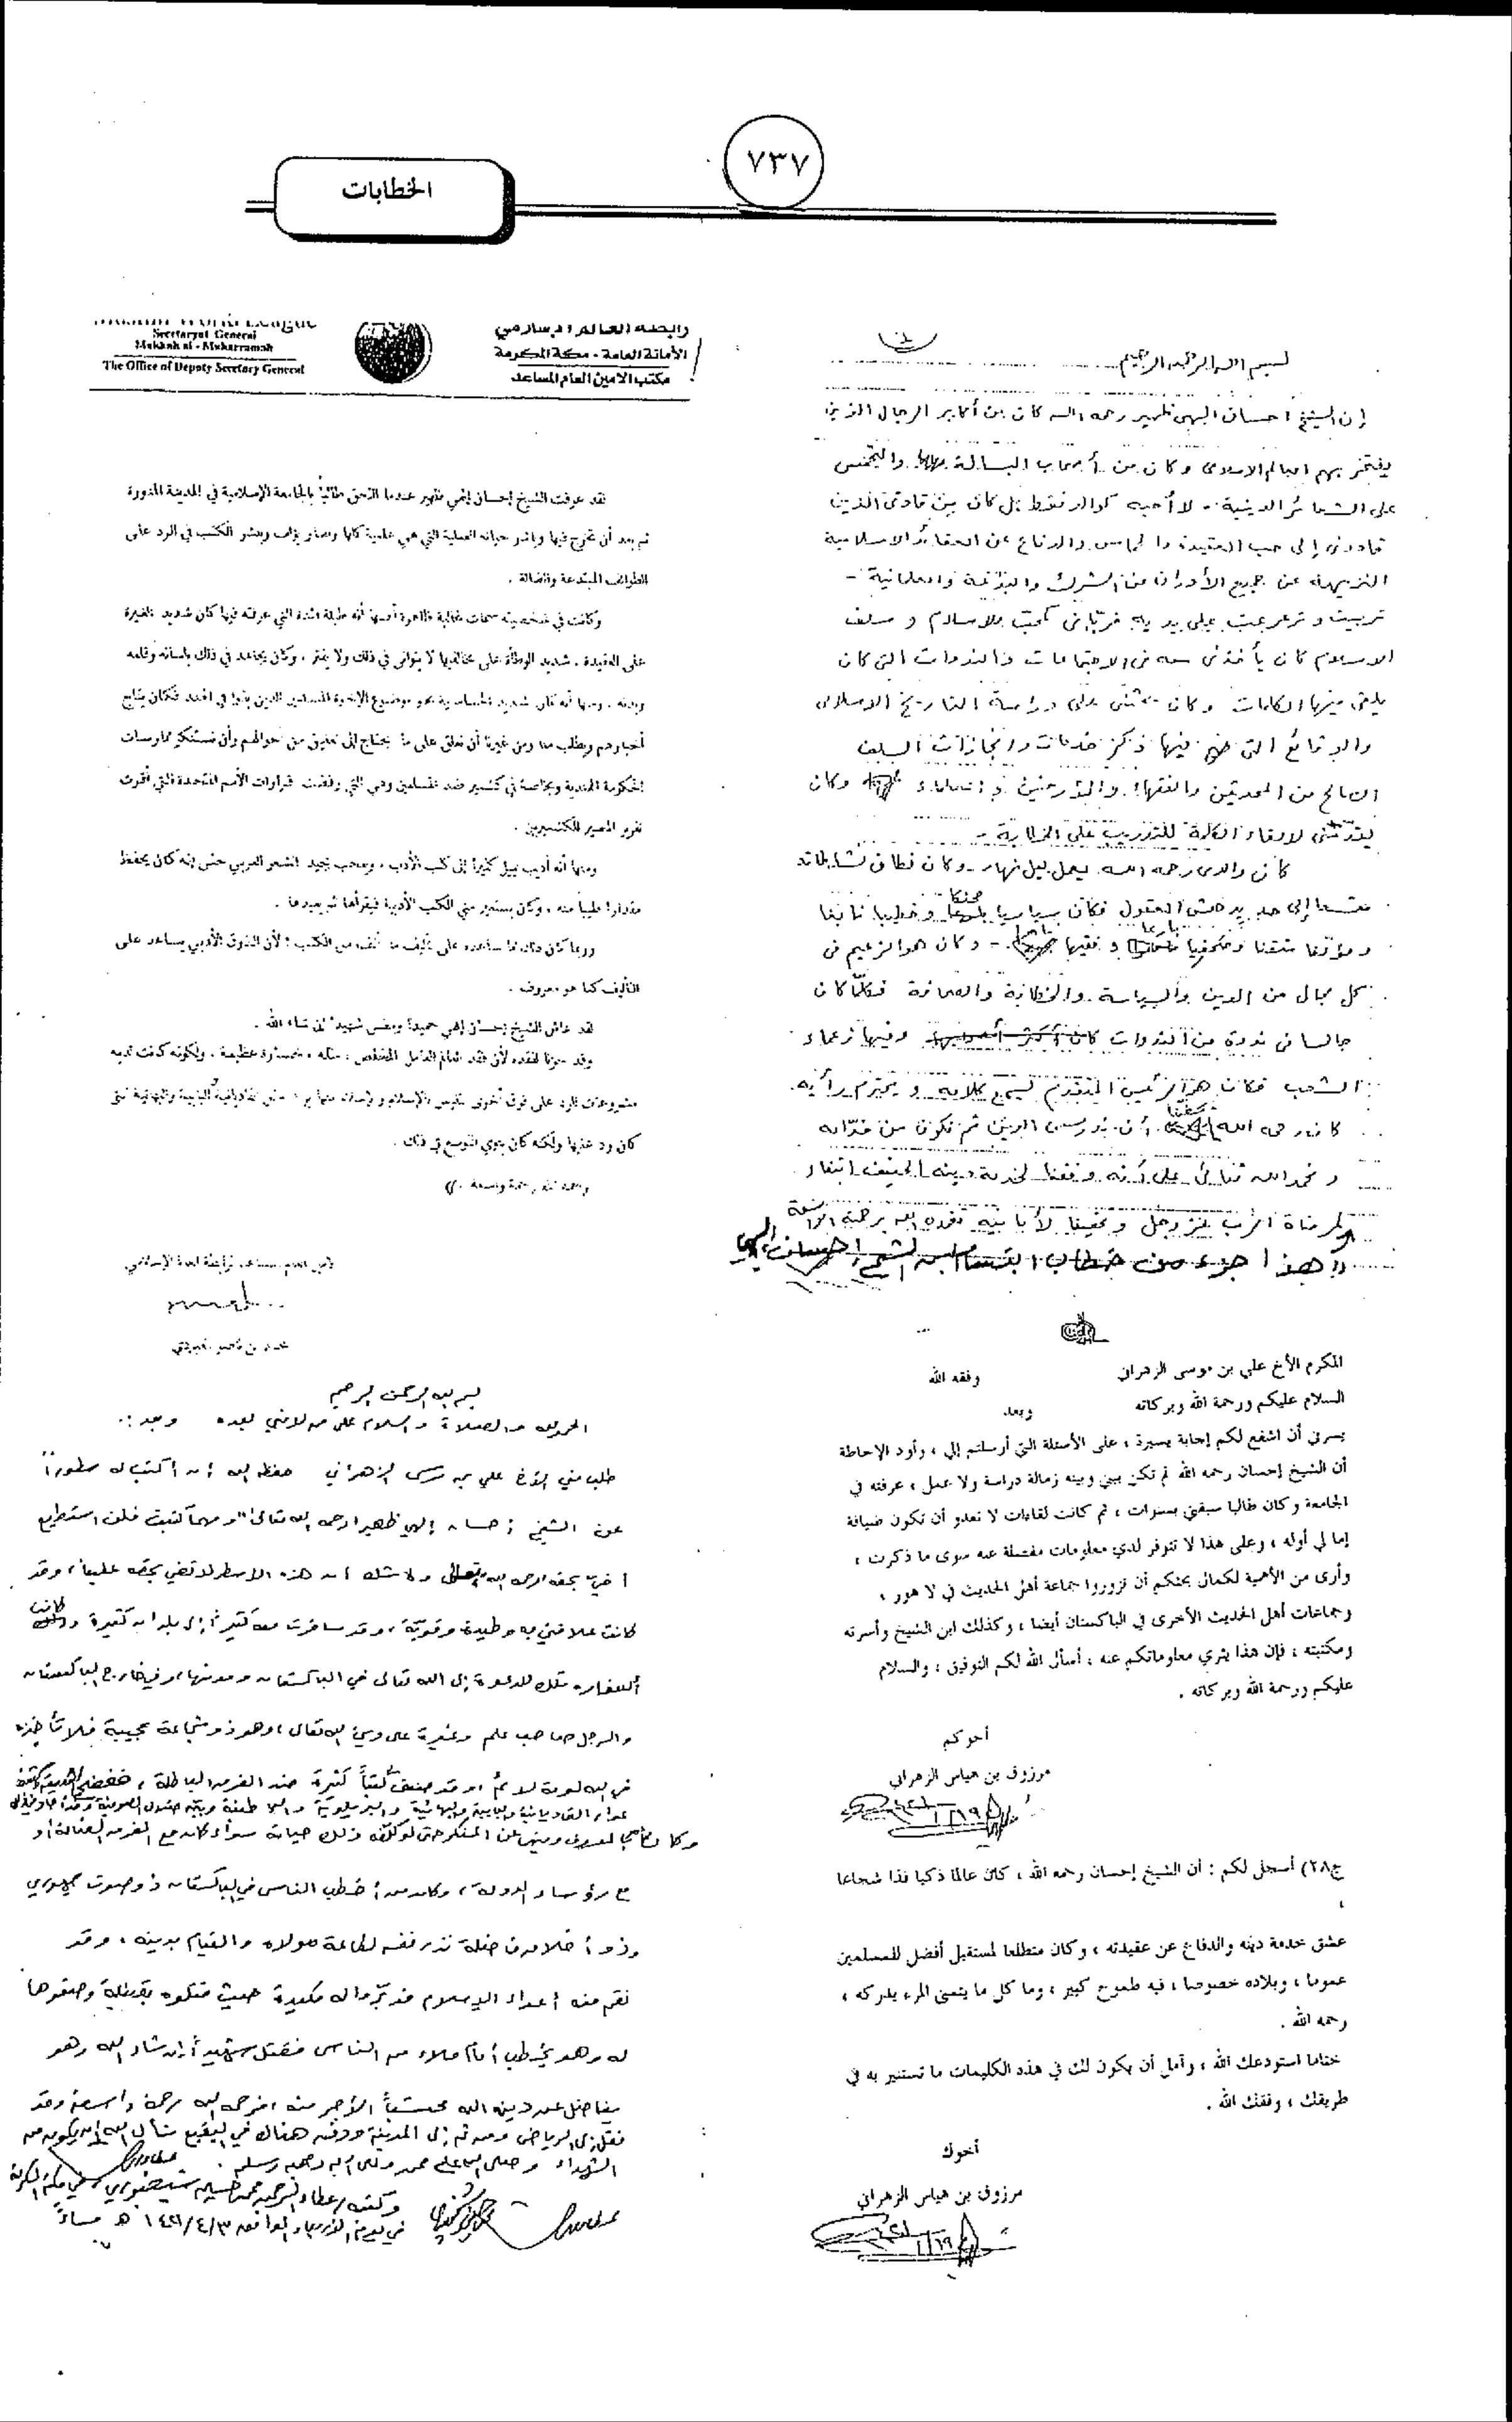 ٧٣٧
الخطابات
بسم الله الرحمن الرحيم
إن الشيخ احسان الهى ظهير رحمه الله كان من أكابر الرجال الذين
يفتخر بهم العالم الاسلامى وكان من أصحاب البسالة والتحمس
على الشعائر الدينية - لا أحبه كوالد فقط بل كان بين قادتى الذين
قادونى إلى حب العقيدة والحماس والدفاع عن العقائد الاسلامية
النزيهة عن جميع الأدران من الشرك والبدعة والعلمانية -
تربيت وترعرعت على يديه
الاسلام كان يأخذنى معه فى الاجتماعات والندوات التى كان
يلقى فيها الكلمات وكان يحثنى على دراسة التاريخ الاسلامى
والوقائع التى فيها ذكر خدمات وانجازات السلف
الصالح من المحدثين والفقهاء والمؤرخين والعلماء وكان
لإلقاء الكلمة للتدريب على الخطابة -
كان والدى رحمه الله يعمل ليل نهار - وكان نطاق نشاطاته
متسعا إلى حد يدهش العقول فكان سياسيا محنكا وخطيبا نابغا
ومؤلفا متقنا وصحفيا بارعا وفقيها - وكان هو الزعيم فى
كل مجال من الدين والسياسة والخطابة والصحافة فكلما كان
جالسا فى ندوة من الندوات وفيها زعماء
الشعب فكان هو الرئيس المتقدم يسمع كلامه ويحترم رأيه.
كان رحمه الله أن ندرس الدين ثم نكون من خدامه
ونحمد الله تعالى على أنه وفقنا لخدمة دينه الحنيف ابتغاء
لمرضاة الرب عز وجل وتحقيقا لأمانيه تغمده الله برحمته الواسعة
هذا جزء من خطاب ابتسام ابن الشيخ احسان الهى
المكرم الأخ علي بن موسى الزهراني وفقه الله
السلام عليكم ورحمة الله وبركاته وبعد
يسرني أن اشفع لكم إجابة يسيرة ، على الأسئلة التي أرسلتم إلي ، وأود الإحاطة
أن الشيخ إحسان رحمه الله لم تكن بيني وبينه زمالة دراسة ولا عمل ، عرفته في
الجامعة وكان طالبا سبقني بسنوات ، ثم كانت لقاءات لا تعدو أن تكون ضيافة
إما لي أوله ، وعلى هذا لا تتوفر لدي معلومات مفصلة عنه سوى ما ذكرت ،
وأرى من الأهمية لكمال بحثكم أن تزوروا جماعة أهل الحديث في لا هور ،
وجماعات أهل الحديث الأخرى في الباكستان أيضا ، وكذلك ابن الشيخ وأسرته
ومكتبته ، فإن هذا يثري معلوماتكم عنه ، أسأل الله لكم التوفيق ، والسلام
عليكم ورحمة الله وبركاته .
أخوكم
مرزوق بن هياس الزهراني
ج٢٨) أسجل لكم : أن الشيخ إحسان رحمه الله ، كان عالما ذكيا فذا شجاعا
،
عشق خدمة دينه والدفاع عن عقيدته ، وكان متطلعا لمستقبل أفضل للمسلمين
عموما ، وبلاده خصوصا ، فيه طموح كبير ، وما كل ما يتمنى المرء يدركه ،
رحمه الله .
ختاما استودعك الله ، وآمل أن يكون لك في هذه الكليمات ما تستنير به في
طريقك ، وفقك الله .
أخوك
مرزوق بن هياس الزهراني
رابطة العالم الإسلامي
الأمانة العامة - مكة المكرمة
مكتب الأمين العام المساعد
Secretaryat General
Makkah al - Mukarramah
The Office of Deputy Secretary General
لقد عرفت الشيخ إحسان إلهي ظهير عندما التحق طالباً بالجامعة الإسلامية في المدينة المنورة
ثم بعد أن تخرج فيها وباشر حياته العملية التي هي علمية كلها وصار يؤلف وينشر الكتب في الرد على
الطوائف المبتدعة والضالة .
وكانت في شخصيته سمات غالبة ظاهرة أهمها أنه طيلة المدة التي عرفته فيها كان شديد الغيرة
على العقيدة ، شديد الوطأة على مخالفيها لا يتوانى في ذلك ولا يفتر ، وكان يجاهد في ذلك بلسانه وقلمه
وبدنه ، ومنها أنه كان شديد الحساسية نحو موضوع الإخوة المسلمين الذين بقوا في الهند فكان يتابع
أخبارهم ويطلب منا ومن غيرنا أن نعلق على ما يحتاج إلى تعليق من أحوالهم وأن نستنكر ممارسات
الحكومة الهندية وبخاصة في كشمير ضد المسلمين وهي التي رفضت قرارات الأمم المتحدة التي أقرت
تقرير المصير للكشميريين .
ومنها أنه أديب يميل كثيراً إلى كتب الأدب ، ومعجب بجيد الشعر العربي حتى إنه كان يحفظ
مقدارا طيباً منه ، وكان يستعير مني الكتب الأدبية فيقرأها ثم يعيدها .
وربما كان ذلك مما ساعده على تأليف ما ألف من الكتب ؛ لأن الذوق الأدبي يساعد على
التأليف كما هو معروف .
لقد عاش الشيخ إحسان إلهي حميداً ومضى شهيداً إن شاء الله .
وقد حزنا لفقده لأن فقد العالم العامل المخلص مثله خسارة عظيمة ، ولكونه كانت لديه
مشروعات للرد على فرق أخرى تلبس بالإسلام وليست منه مثل القاديانية والبابية والبهائية التي
كان رد عليها ولكنه كان ينوي التوسع في ذلك .
رحمه الله رحمة واسعة .
الأمين العام المساعد لرابطة العالم الإسلامي
محمد بن ناصر العبودي
بسم الله الرحمن الرحيم
الحمد لله والصلاة والسلام على من لا نبي بعده وبعد :.
طلب مني الأخ علي بن موسى الزهراني حفظه الله أن أكتب له سطوراً
عن الشيخ إحسان إلهي ظهير رحمه الله تعالى ومهما كتبت فلن استطيع
أفي بحقه رحمه الله تعالى ولا شك أن هذه الاسطر لا تفي بحقه علينا ، وقد
كانت علاقتي به وطيدة وقوية ، وقد سافرت معه كثيراً إلى بلدان كثيرة وكانت
أسفاره تلك للدعوة إلى الله تعالى في الباكستان ومدنها ، وفي خارج الباكستان
والرجل صاحب علم وغيرة على دين الله تعالى ، وهو ذو شجاعة عجيبة فلا تأخذه
في الله لومة لائم ، وقد صنف كتباً كثيرة ضد الفرق الباطلة ،
عوار القاديانية والبابية والبهائية والبريلوية
وكان لا يخاف ينهى عن المنكر حتى لو كلفه ذلك حياته سواء كان مع الفرق الضالة أو
مع رؤساء الدولة ، وكان من أخطب الناس في الباكستان ذو صوت جهوري
وذو أخلاق فاضلة نذر نفسه لطاعة مولاه والقيام بدينه ، وقد
نقم منه أعداء الإسلام فدبروا له مكيدة حيث فتكوه بقنبلة وضعوها
له وهو يخطب أمام ملاء من الناس فقتل شهيداً إن شاء الله وهو
يناضل عن دين الله محتسباً الأجر منه ، فرحمه الله رحمة واسعة وقد
نقل إلى الرياض ومن ثم إلى المدينة ودفن هناك في البقيع نسأل الله أن يكون من
الشهداء وصلى الله على محمد وعلى آله وصحبه وسلم .
وكتبه / عطاء الرحمن محمد حسين شيخوبوري في مكة المكرمة
في يوم الأربعاء الموافق ١٤٢١/٤/٣ هـ مساءً